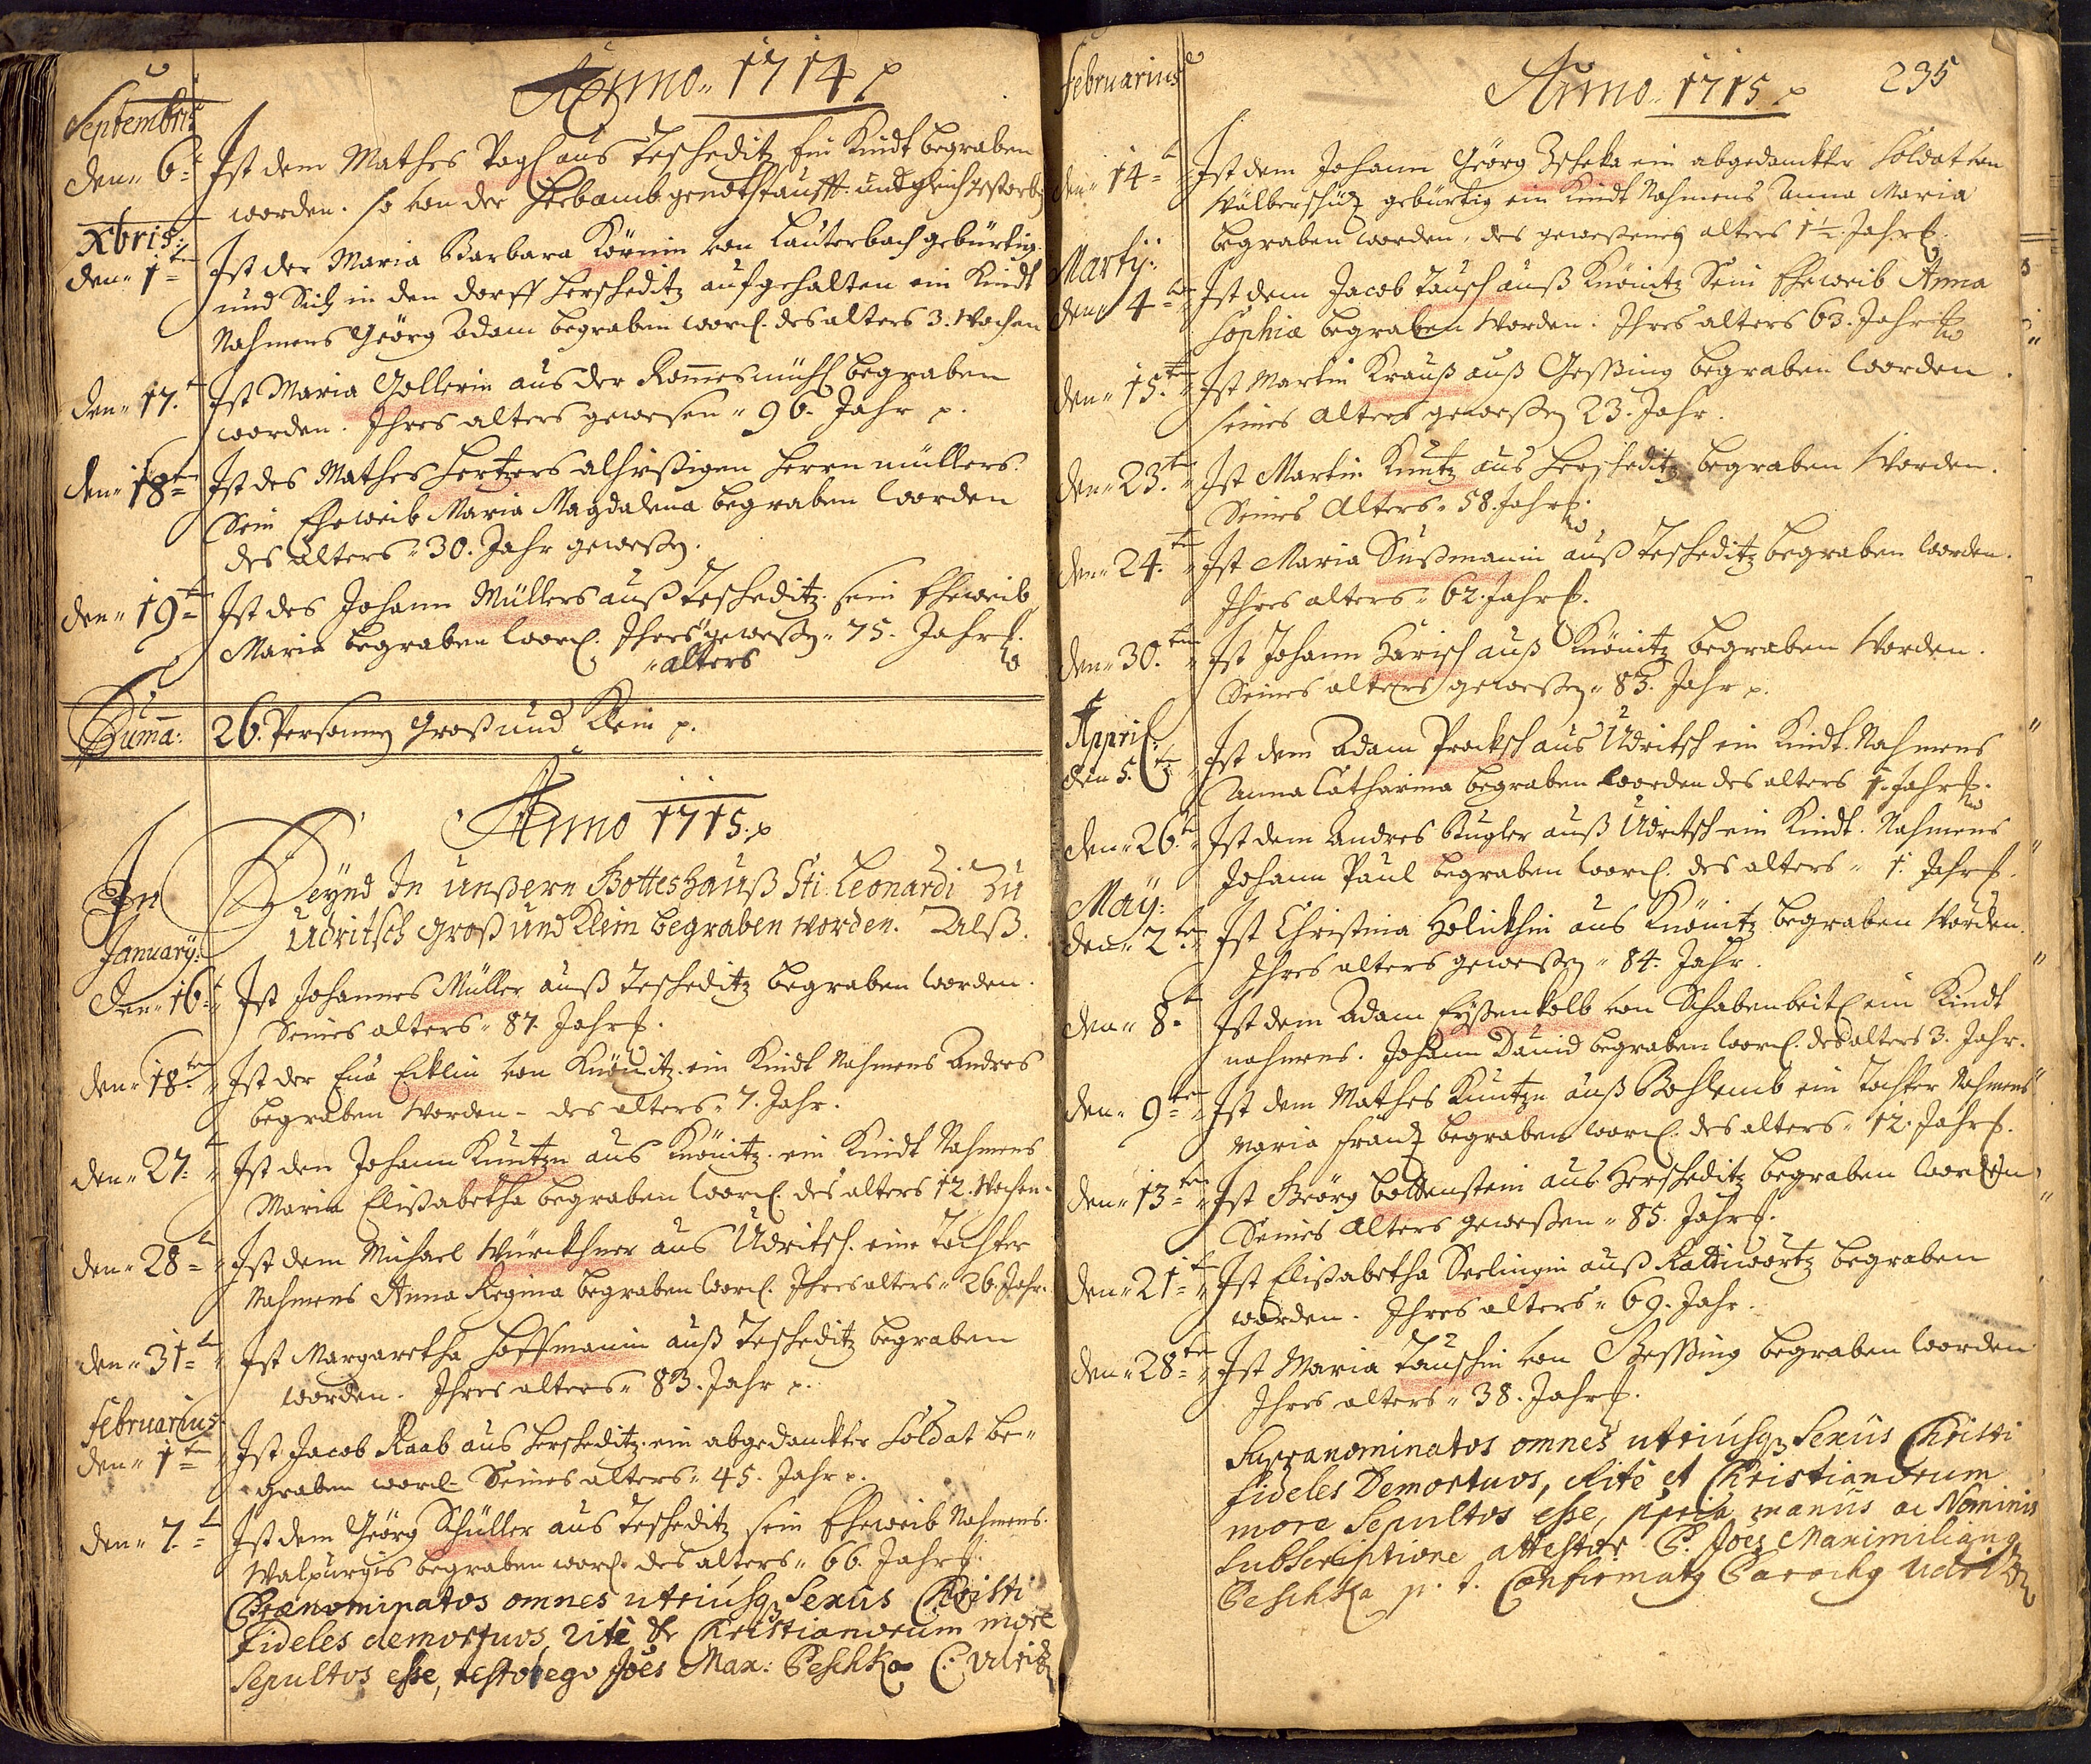 Anno 1714 p
Septembris
den 6t Ist dem Mathes Pogl aus Tescheditz ein Kindt begraben
worden. so von der Hebamb genothtaufft und gleich gestorben
Xbris:
den 1ten Ist der Maria Barbara Körnin von Lauterbach gebürtig
und Sich in den dorff Herscheditz aufgehalten ein Kindt
Nahmens Geörg Adam begraben word. des alters 3. Wochen
den 17.t Ist Maria Gollerin aus der Rom̄esmühl begraben
worden. Ihres alters gewesen 96. Jahr p.
den 18ten Ist des Mathes Hertzers alhießigen Herrn müllers
Sein Eheweib Maria Magdalena begraben worden
des alters 30. Jahr geweßen.
den 19ten Ist des Johann Müllers auß Tescheditz sein Eheweib
Maria begraben word. Ihres geweßen 75. Jahr p.
alters
Sum̄a: 26. Personnen Groß und Klein p.
Anno 1715. p
In Seynd In unßern Gotteshauß Sti: Leonardi Zu
Udritsch Groß und Klein begraben worden. Alß.
January:
den 16t Ist Johannes Müller auß Tescheditz begraben worden.
Seines alters 87. Jahr p.
den 18ten Ist der Eva Ecklin von Knönitz ein Kindt Nahmens Andres
begraben worden des alters 7. Jahr.
den 27.t Ist den Johann Kuntzn aus Knönitz ein Kindt Nahmens
Maria Elisabetha begraben word. des alters 12. Wochen.
den 28t Ist dem Michael Würckhner aus Udritsch eine Tochter
Nahmens Anna Regina begraben word. Ihres alters 26. Jahr.
den 31t Ist Margaretha Hoffmanin auß Tescheditz begraben
worden. Ihres alters 83. Jahr p.
Februarius
den 1ten Ist Jacob Raab aus Herscheditz ein abgedanckter Soldat be-
graben word. Seines alters 45. Jahr p.
den 7.t Ist dem Geörg Schüller aus Tescheditz sein Eheweib Nahmens
Walpurgis begraben word. des alters 66. Jahr p.
Praenominatos omnes utriusq3 Sexus Christi
fideles demortuos, rite & Christianorum more
Sepultos esse, testor ego Joes Max: Peschka
Februarius
Anno 1715 p 235
den 14t Ist dem Johann Geörg Zscheka ein abgedanckter Soldat von
gebürtig ein Kindt Nahmens Anna Maria
begraben worden, des geweßenen alters 1½ Jahr p.
Marty:
den 4ten Ist dem Jacob Tausch auß Knönitz Sein Eheweib Anna
Sophia begraben worden. Ihres alters 63. Jahr p
den 15.ten Ist Martin Krauß auß Geßing begraben worden
seines alters geweßen 23. Jahr.
den 23.ten Ist Martin Kuntz aus Herscheditz begraben worden.
Seines Alters 58. Jahr p.
den 24.ten Ist Maria Sußmanin auß Tescheditz begraben worden.
Ihres alters 62. Jahr p.
den 30.ten Ist Johann Harisch auß Knönitz begraben worden.
Seines alters geweßen 83. Jahr p.
Appril:
den 5.ten Ist dem Adam Procksch aus Udritsch ein Kindt Nahmens
Anna Catharina begraben worden des alters 1. Jahr p.
den 26.t Ist dem Andres Kugler auß Udritsch ein Kindt Nahmens
Johann Paul begraben word. des alters 1. Jahr p.
May:
den 2ten Ist Christina Holickhin aus Knönitz begraben worden.
Ihres alters geweßen 84. Jahr.
den 8.ten Ist dem Adam Eyßenkolb von ein Kindt
nahmens Johann David begraben word. des alters 3. Jahr.
den 9ten Ist dem Mathes Kuntzn auß Bohlemb ein Tochter Nahmens
Maria Frantz begraben word. des alters 12. Jahr p.
den 13ten Ist Geörg Bottenstein aus Herscheditz begraben worden
Seines Alters geweßen 85. Jahr p.
den 21t Ist Elisabetha Seelingin auß Rattiwortz begraben
worden. Ihres alters 69. Jahr.
den 28ten Ist Maria Tauschin von Geßing begraben worden
Ihres alters 38. Jahr p.
Supranominatos omnes utriusq3 Sexus Christi
fideles Demortuos, Rite et Christianorum
more Sepultos esse, ppria manus ac Nominis
Subscriptione attestor P. Joes Maximilian9
Peschka p. t. Confirmat9 Paroch9